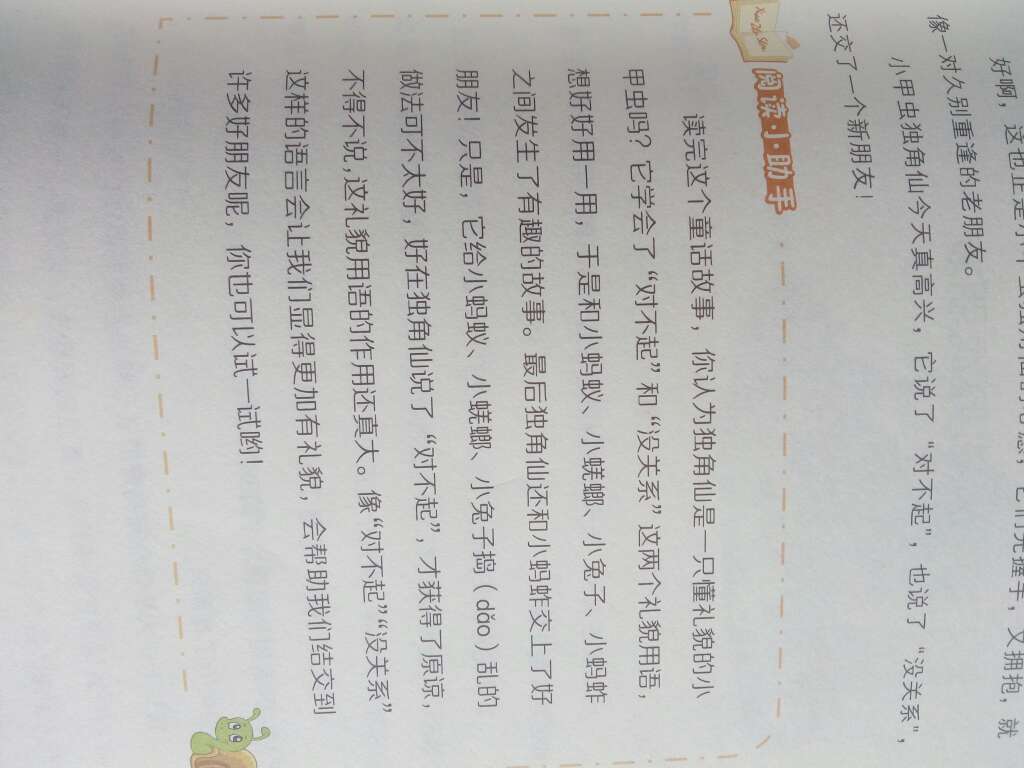 好啊，这也正是小甲虫独角仙的心愿，它们先握手，又拥抱，就
像一对久别重逢的老朋友。
小甲虫独角仙今天真高兴，它说了“对不起”，也说了“没关系”，
还交了一个新朋友！
阅读·小·助手
读完这个童话故事，你认为独角仙是一只懂礼貌的小
甲虫吗？它学会了“对不起”和“没关系”这两个礼貌用语，
想好好用一用，于是和小蚂蚁、小蜣螂、小兔子、小蚂蚱
之间发生了有趣的故事。最后独角仙还和小蚂蚱交上了好
朋友！只是，它给小蚂蚁、小蜣螂、小兔子捣（dǎo）乱的
做法可不太好，好在独角仙说了“对不起”，才获得了原谅，
不得不说，这礼貌用语的作用还真大。像“对不起”“没关系”
这样的语言会让我们显得更加有礼貌，会帮助我们结交到
许多好朋友呢，你也可以试一试哟！